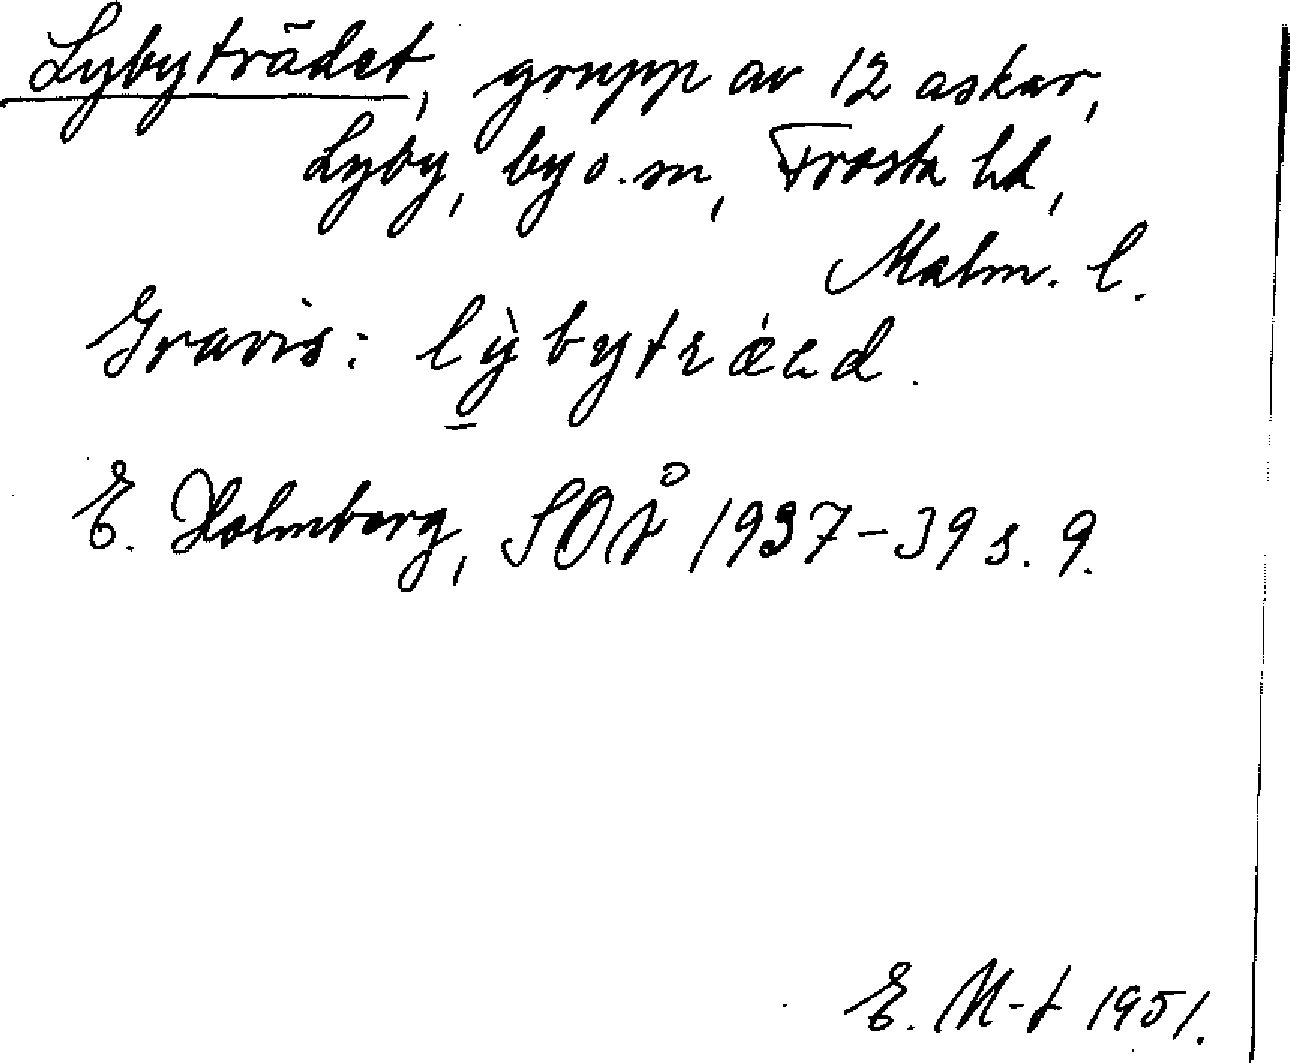 Lybyträdet, grupp av 12 askar,
Lyby, by o. sn, Frosta hd,
Malm. l.
Gravis: lỳbytrǽed.
E. Holmberg, SOÅ 1937-39 s. 9.
E. M-t 1951.